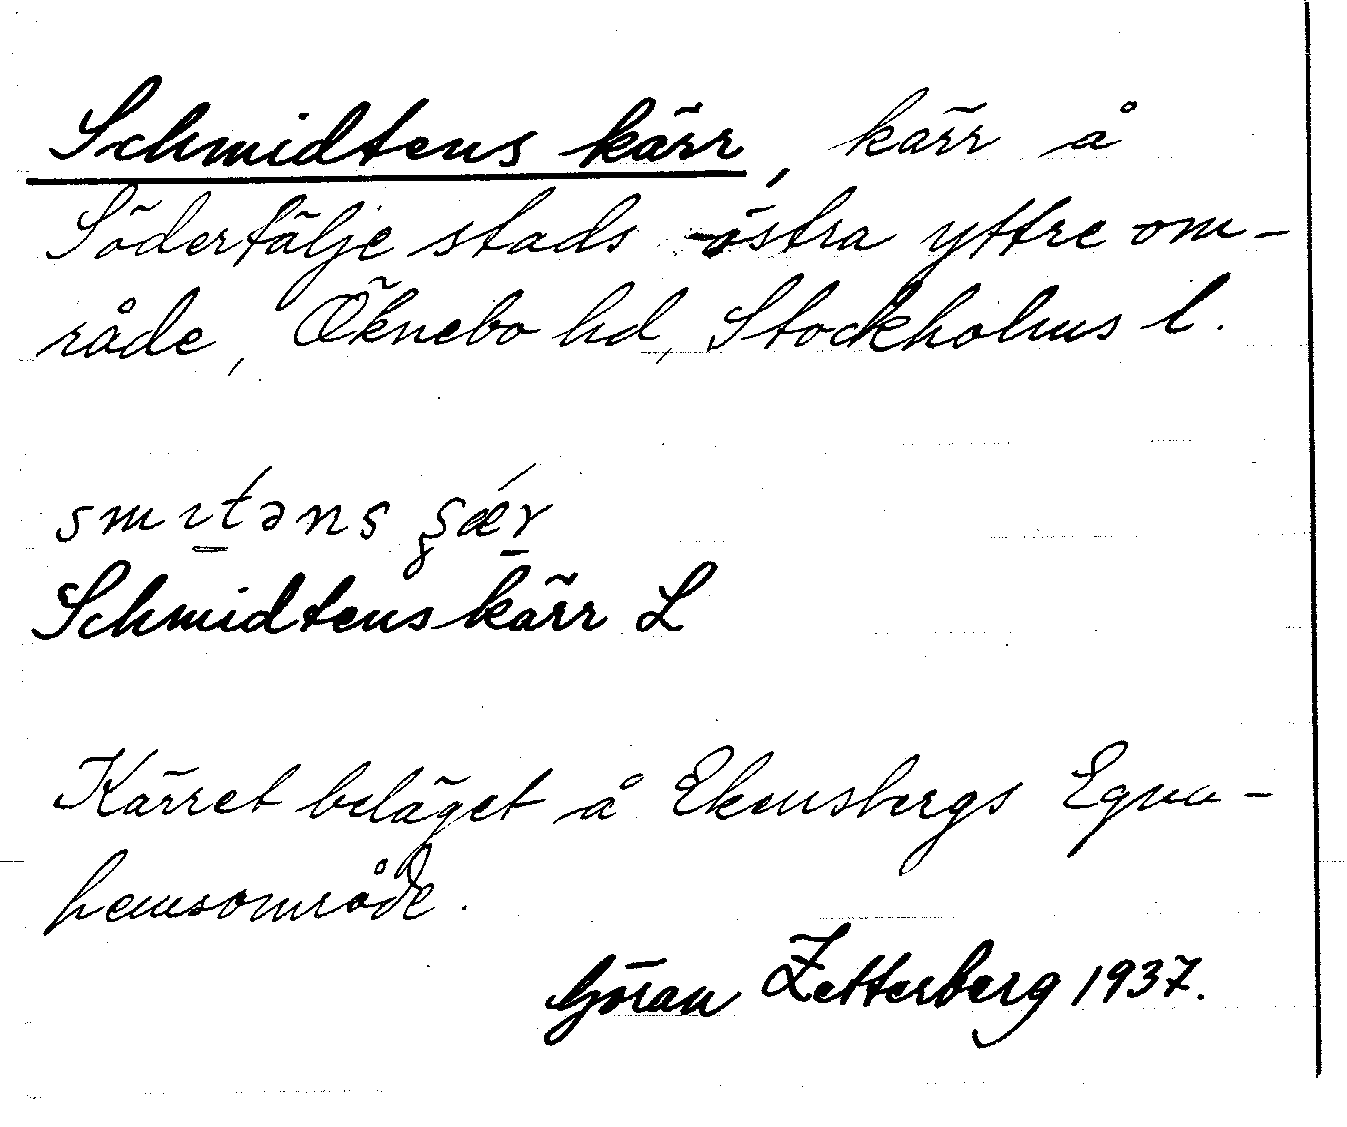 Schmidtens kärr, kärr å
Södertälje stads östra yttre om-
råde, Öknebo hd, Stockholms l.
smıtəns ʂǽr
Schmidtens kärr L
Kärret beläget å Ekensbergs Egna-
hemsområde.
Göran Zetterberg 1937.